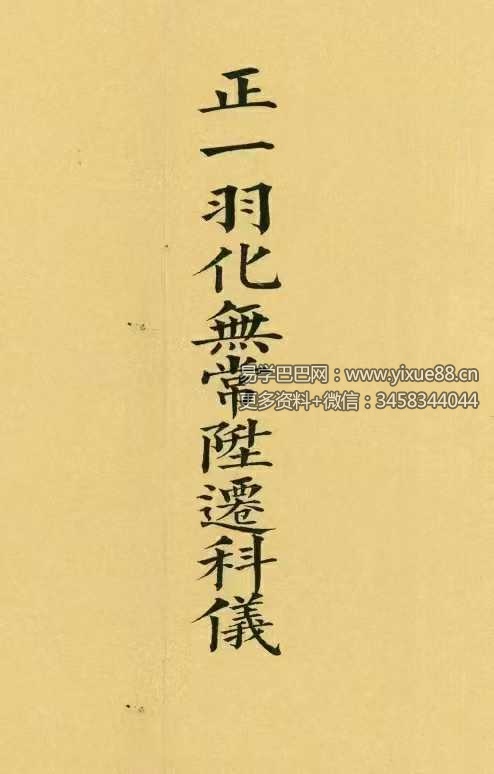 正一羽化無常陞遷科儀
易学巴巴网：www.yixue88.cn
更多资料+微信：3458344044